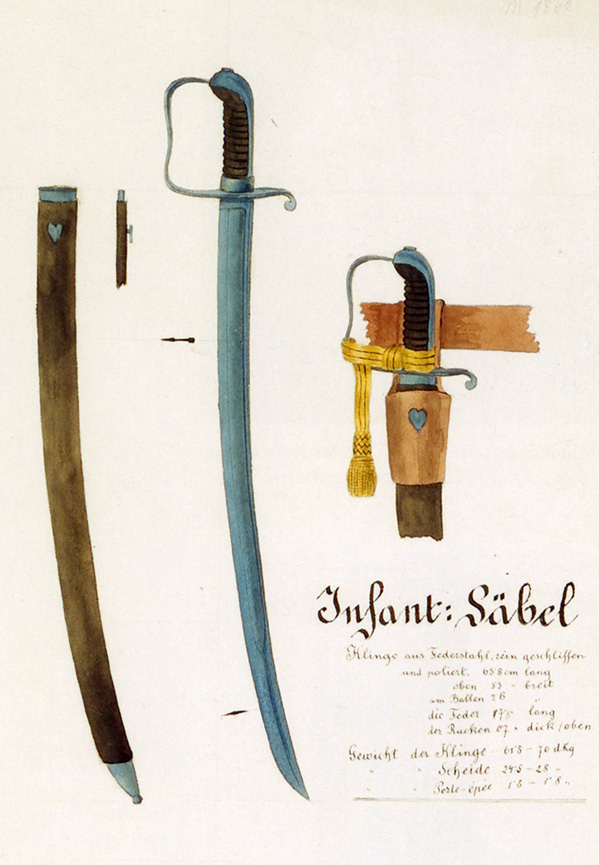 M 1862
Infant: Säbel
Klinge aus Federstahl, rein geschliffen
und poliert, 65·8 cm lang
oben 33 - breit
am Ballen 26 "
die Feder 17· lang
der Rücken 0·7 " dick, oben
Gewicht der Klinge 61·5 - 70 dKg
" " Scheide 24·5 - 28 "
" " Porte-épée 1·6 - 1·8 "